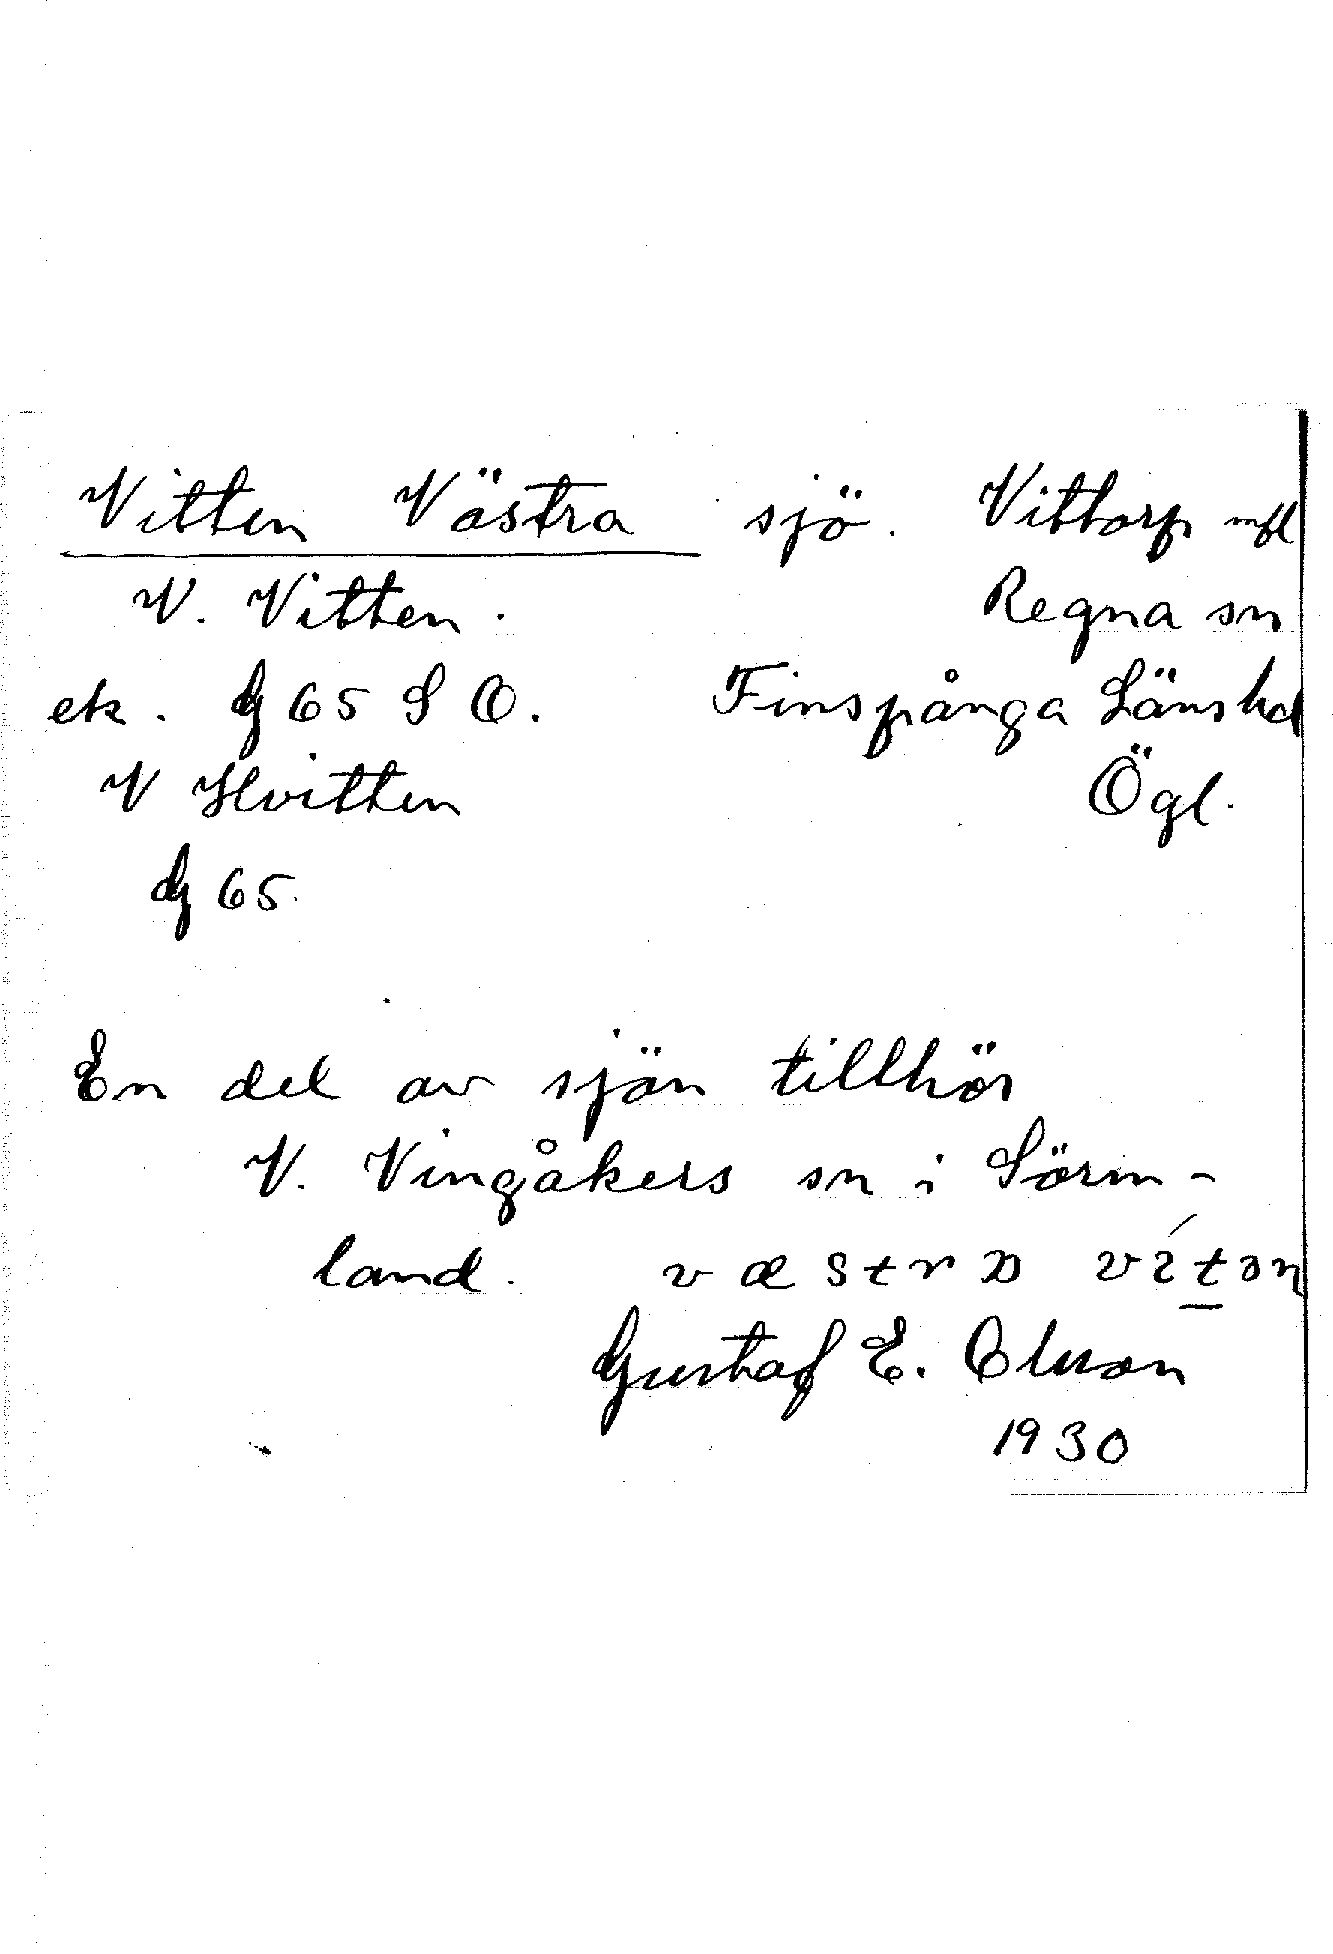 Vitten Västra sjö. Vittorp mfl
V. Vitten. Regna sn
ek. G 65 S O. Finspånga Länshd
V Hvitten Ögl.
G 65.
En del av sjön tillhör
V. Vingåkers sn i Sörm-
land. væstra vítən
Gustaf E. Olsson
1930